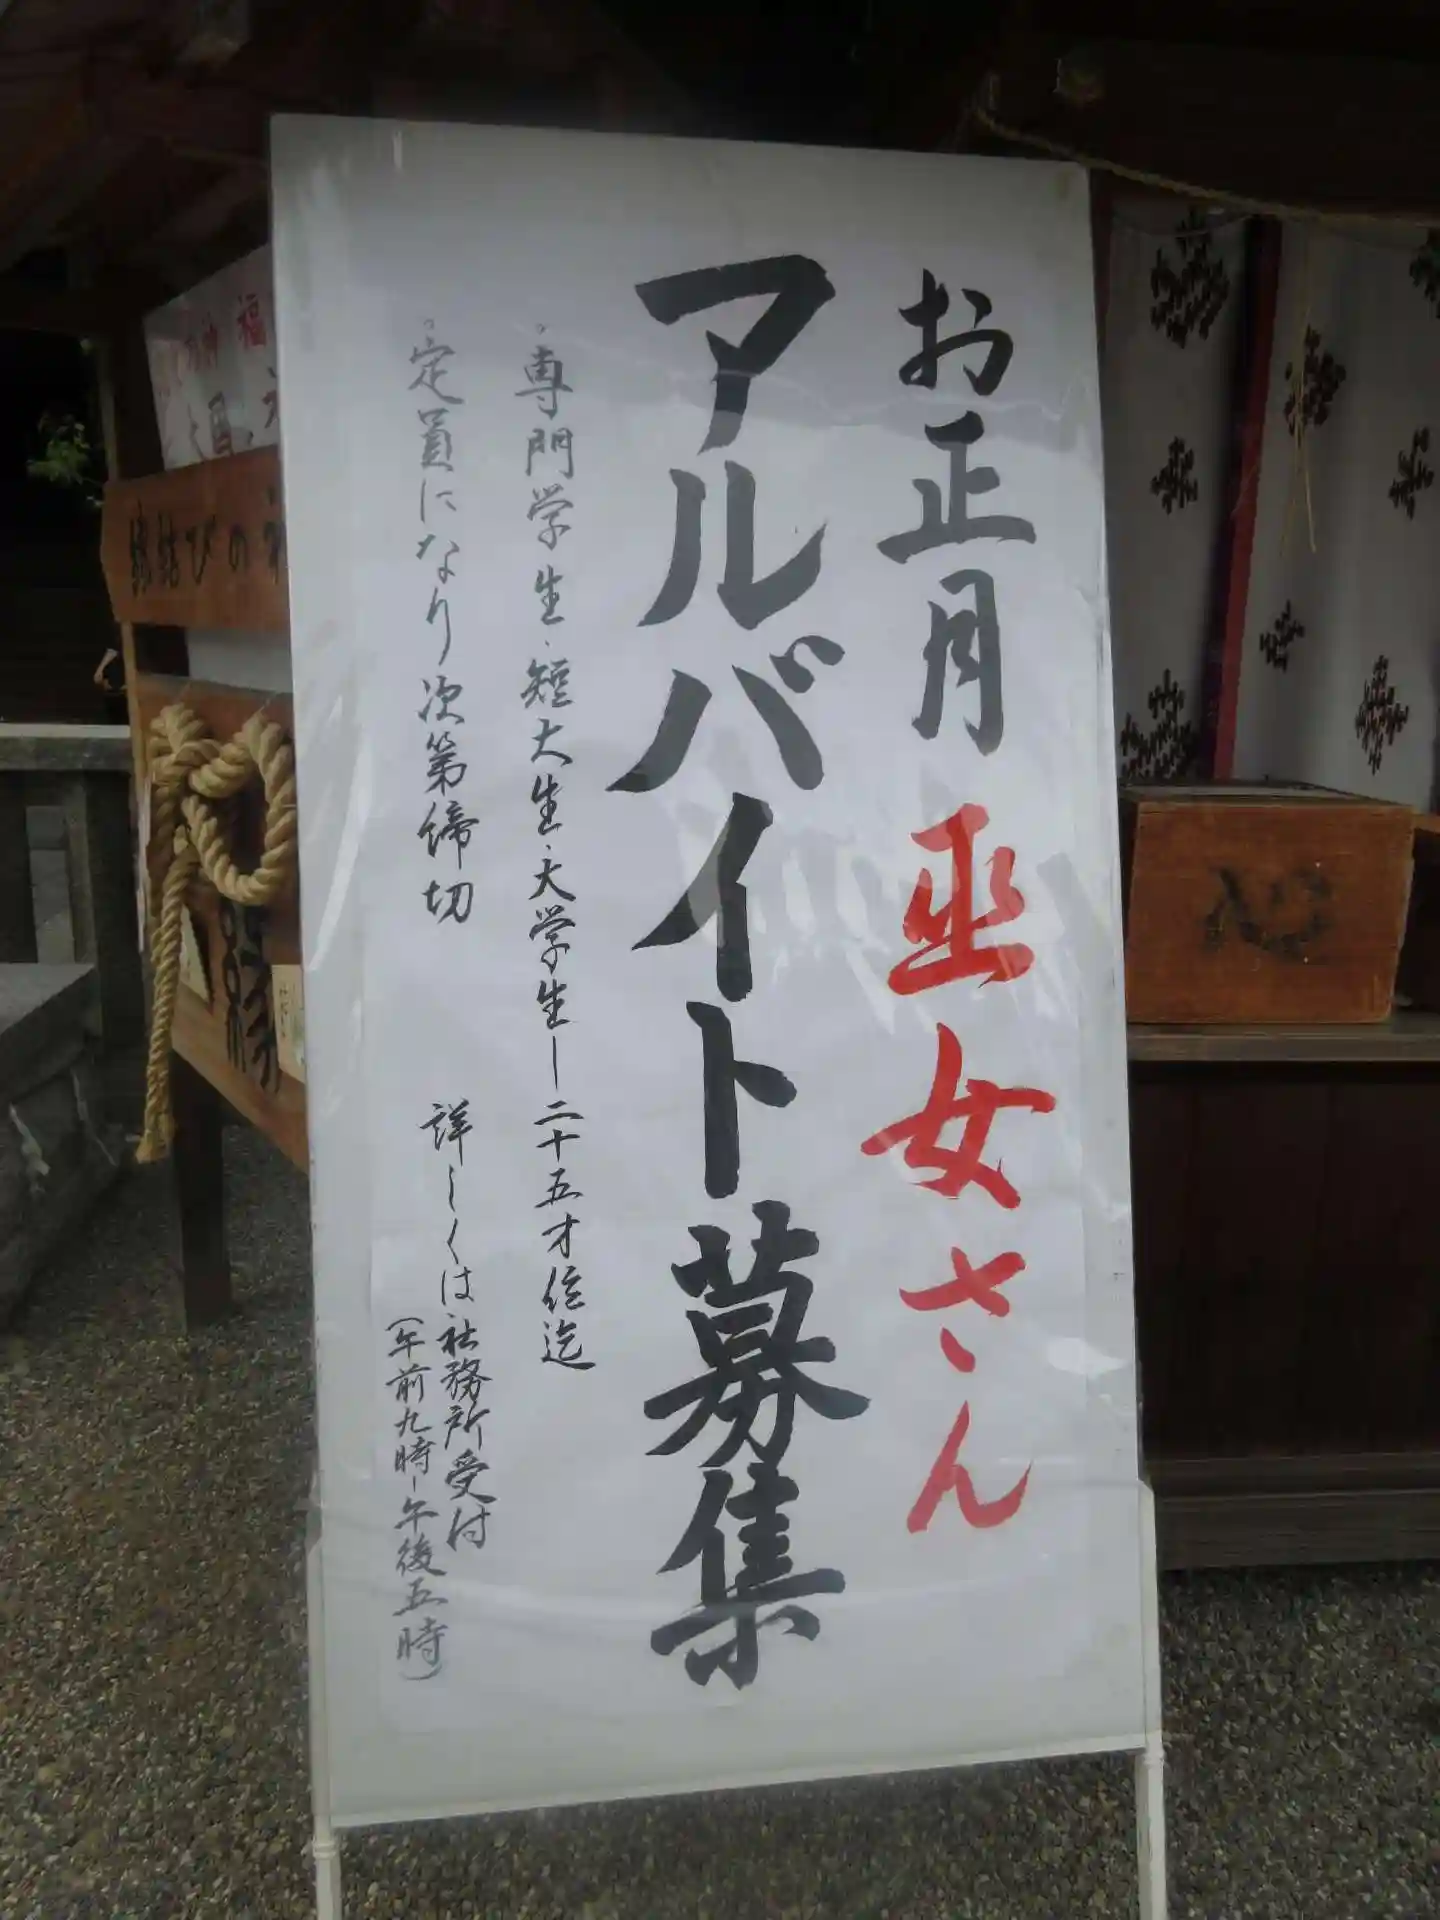 お正月 巫女さん
アルバイト募集
・専門学生・短大生・大学生ー二十五才位迄
・定員になり次第締切
詳しくは社務所受付
(午前九時ー午後五時)
縁結びの
縁
福